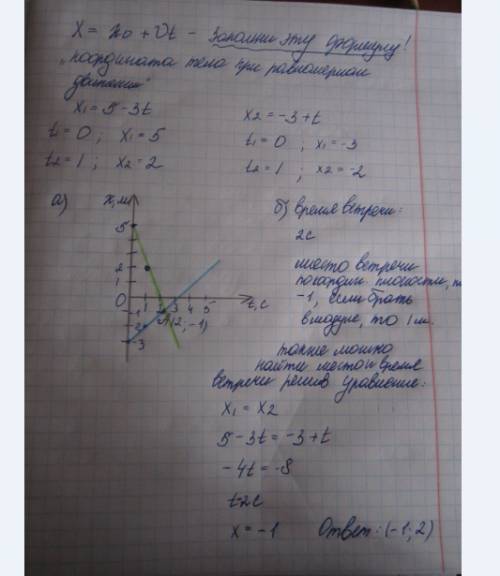 X = x₀ + υt – Запомни эту формулу!
"координата тела при равномерном
движении"
x₁ = 5 - 3t
t₁ = 0 ; x₁ = 5
t₂ = 1 ; x₂ = 2
x₂ = -3 + t
t₁ = 0 ; x₁ = -3
t₂ = 1 ; x₂ = -2
а)
x, м
5
2
1
0
1 3 4 5
t, с
-1
-2
-3
A(2; -1)
б) время встречи:
2с
место встречи
по координ. плоскости,
-1, если брать
в модуле, то 1 м.
также можно
найти место и время
встречи решив уравнение:
x₁ = x₂
5 - 3t = -3 + t
-4t = -8
t=2c
x = -1 Ответ: (-1; 2)